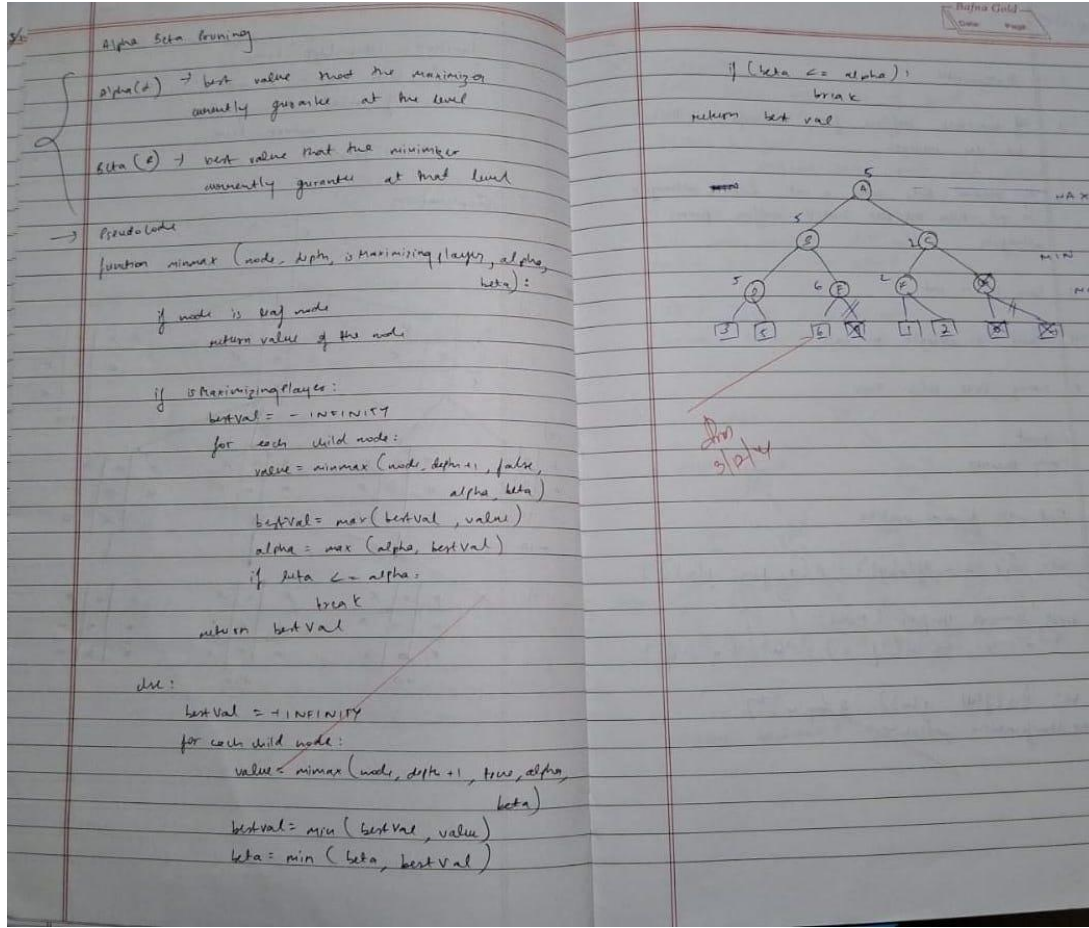 Alpha Beta Pruning
alpha(α) → best value that the maximizer
currently gurantee at the level
Beta (β) → best value that the minimizer
currently gurantee at that level
→ Pseudocode
function minmax (node, depth, isMaximizingplayer, alpha,
beta) :
if node is leaf node
return value of the node
if isMaximizingPlayer :
bestval = - INFINITY
for each child node :
value = minmax (node, depth+1, false,
alpha, beta)
bestval = max (bestval , value)
alpha = max (alpha, bestval)
if beta <= alpha:
break
return bestval
else :
bestval = + INFINITY
for each child node :
value = minmax (node, depth +1, true, alpha,
beta)
bestval = min ( bestval , value)
beta = min ( beta, bestval )
Bafna Gold
Date Page
if (beta <= alpha) :
break
return best val
5
A MAX
5
B 2 C
MIN
5 D 6 E 2 F
3 5 6 1 2
3/12/24